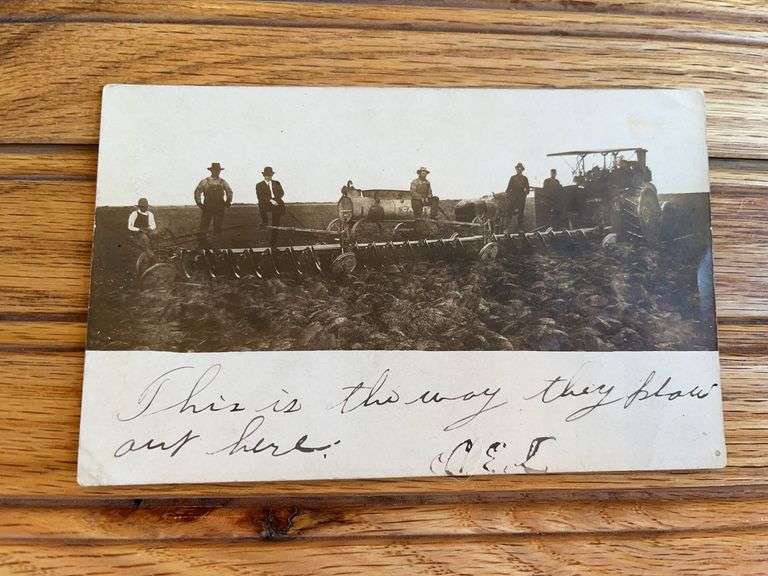 This is the way they plow
out here.
C. E. L